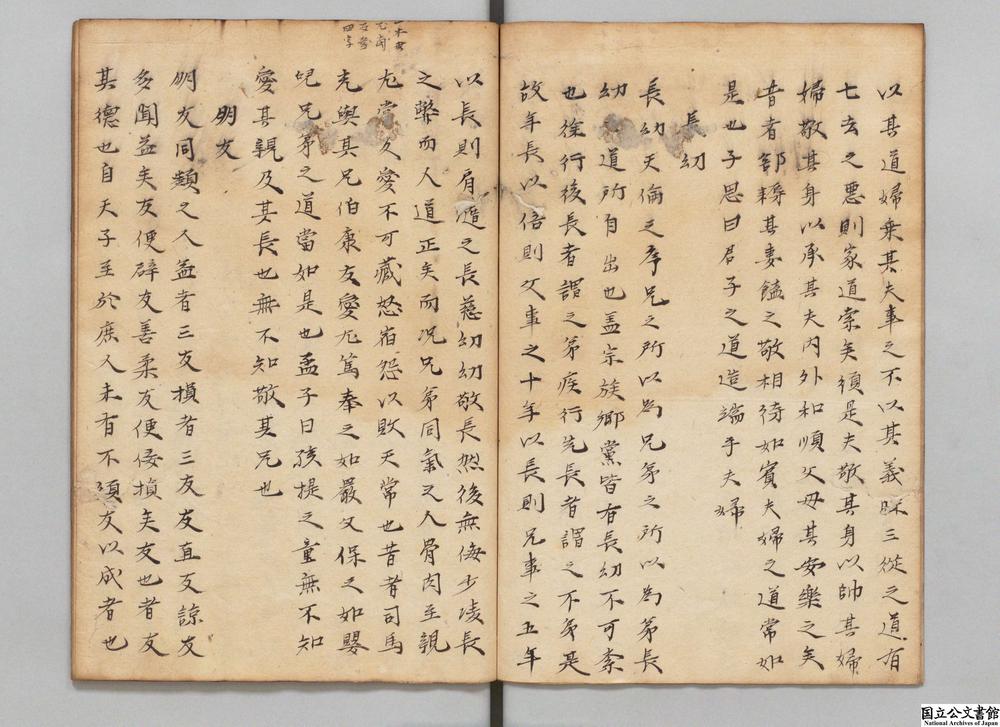 以其道婦乗其夫事之不以其義昧三從之道有
七去之悪則家道索矣須是夫敬其身以帥其婦
婦敬其身以承其夫内外和順父母其安樂之矣
昔者郤耨其妻饁之敬相待如賓夫婦之道當如
是也子思曰君子之道造端乎夫婦
長幼
長幼天倫之序兄之所以為兄弟之所以為弟長
幼道所自出也盖宗族郷黨皆有長幼不可紊
也徐行後長者謂之弟疾行先長者謂之不弟是
故年長以倍則父事之十年以長則兄事之五年
以長則肩随之長慈幼幼敬長然後無侮少陵長
之弊而人道正矣而况兄弟同氣之人骨肉至親
尤當友愛不可蔵怒宿怨以敗天常也昔者司馬
光與其兄伯康友愛尤篤奉之如嚴父保之如嬰
児兄弟之道當如是也孟子曰孩提之童無不知
愛其親及其長也無不知敬其兄也
朋友
朋友同類之人益者三友損者三友友直友諒友
多聞益矣友便辟友善柔友便佞損矣友也者友
其德也自天子至於庶人未有不須友以成者也
国立公文書館
National Archives of Japan